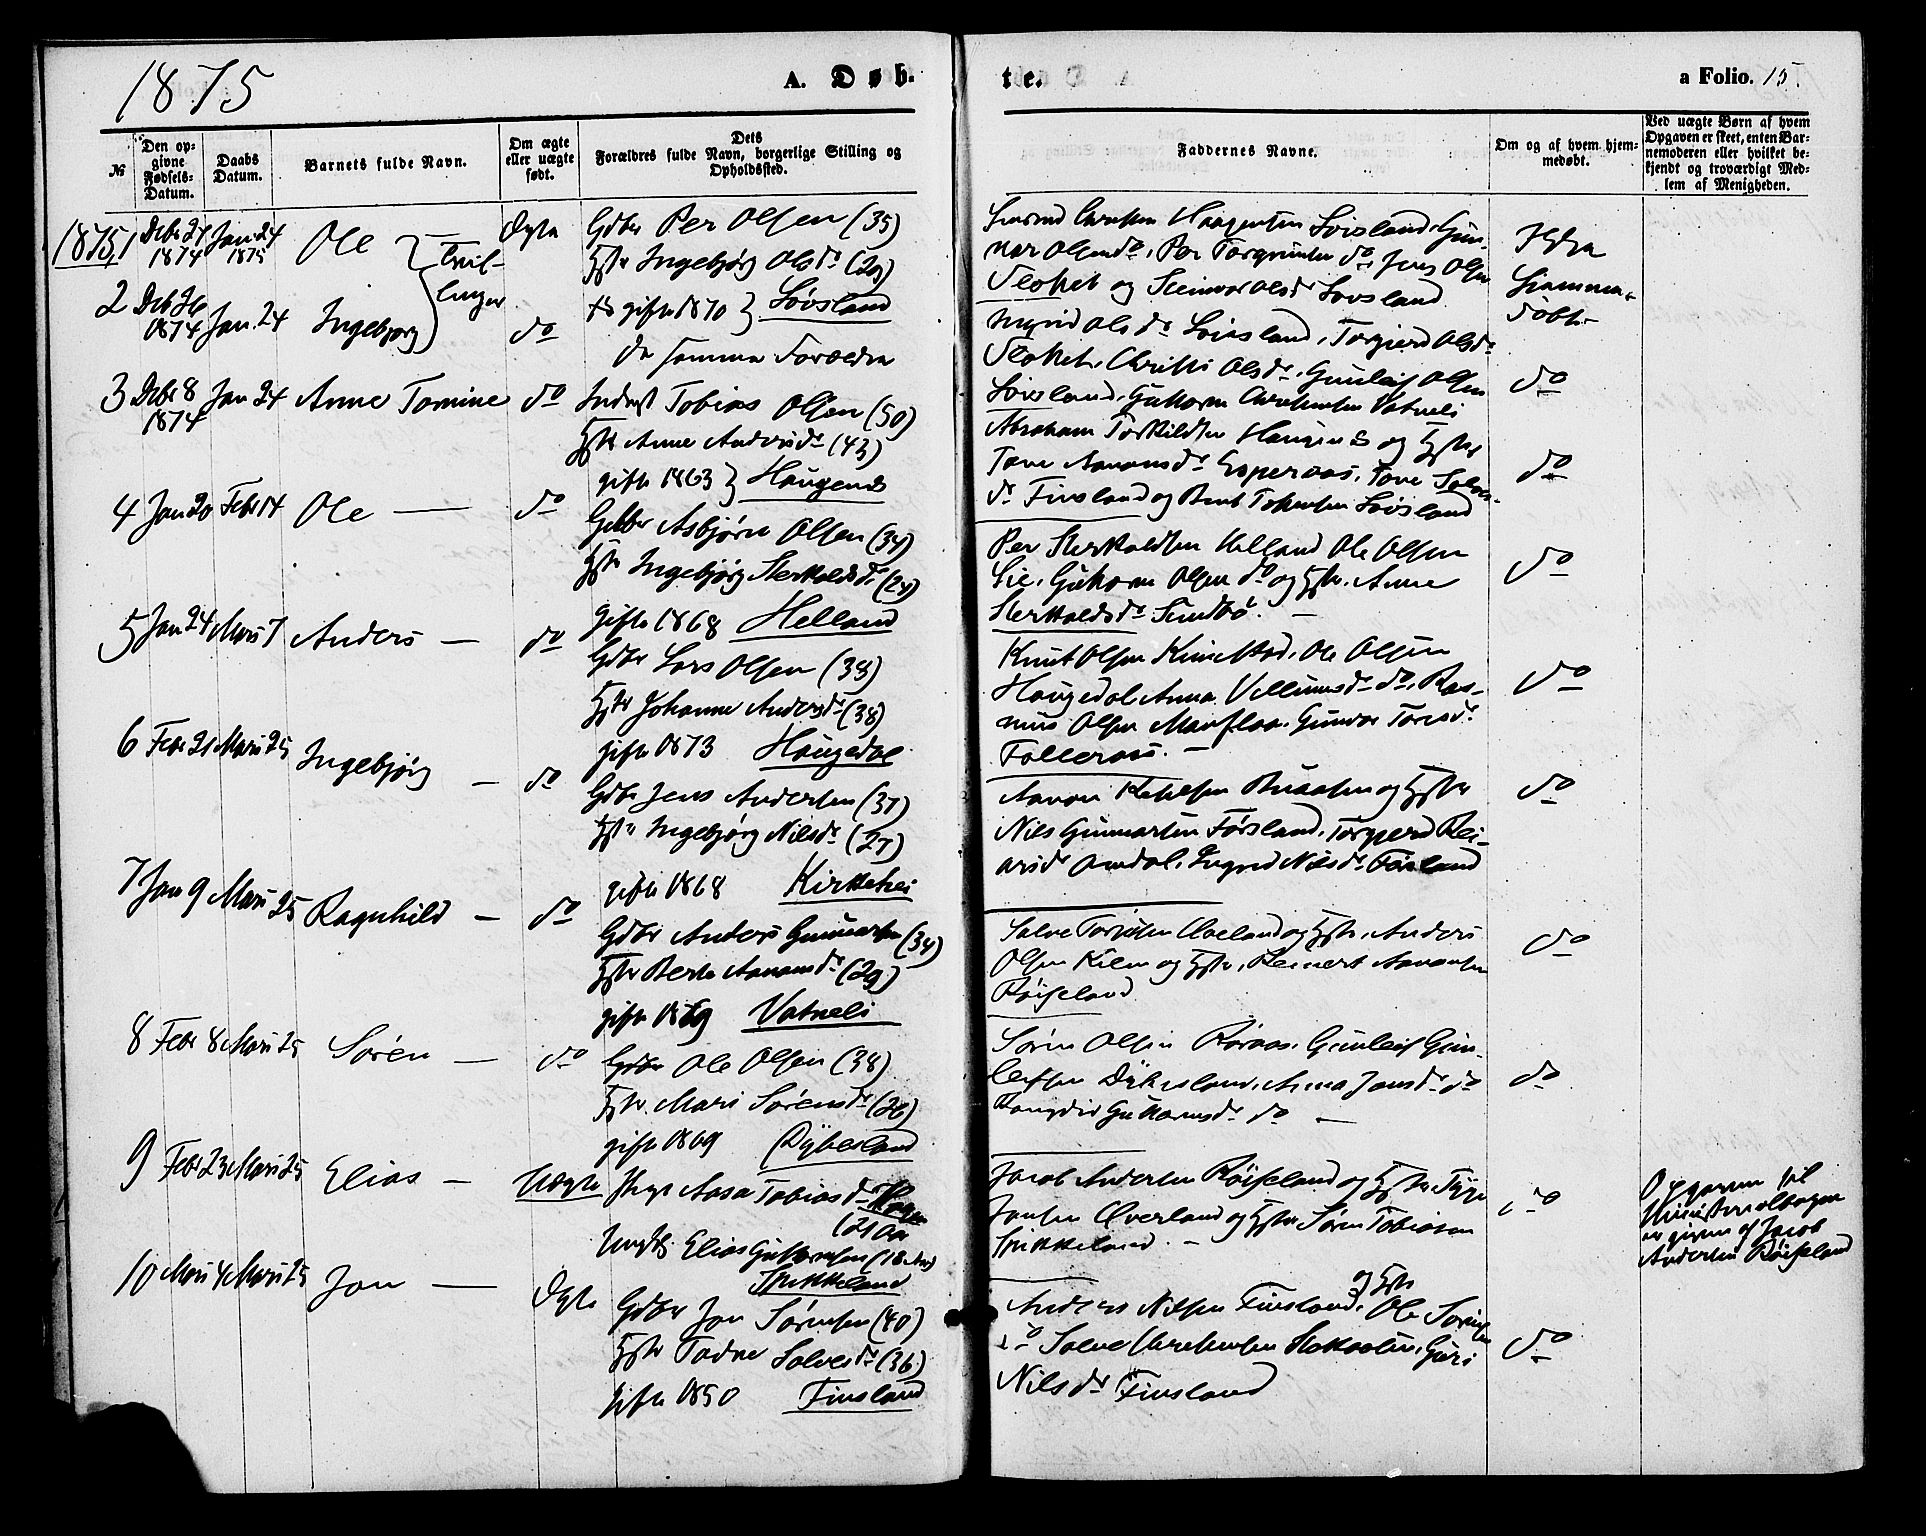 1875
A. Døb-
te.
a Folio. 15.
№
Den op-
givne
Fødsels-
Datum.
Daabs
Datum.
Barnets fulde Navn.
Om ægte
eller uægte
født.
Dets
Forældres fulde Navn, borgerlige Stilling og
Opholdssted.
Faddernes Navne.
Om og af hvem hjem-
medøbt.
Ved uægte Børn af hvem
Opgaven er skeet, enten Bar-
nemoderen eller hvilket be-
kjendt og troværdigt Med-
lem af Menigheden.
1875, 1 Decbr 21 1874 Jan. 24 1875 Ole Tvil- Ægte
Gdbr Per Olsen (35)
Hstr Ingebjørg Olsdr (29)
gifte 1870 Løvsland
2 Deb 26 1874 Jan. 24 Ingebjørg linger do
de samme Forældre
Haagensen Løvsland, Gun-
nar Olsen do, Per Torgrimsen do, Jens Olsen
Stoket og Steinvor Olsdr Løvsland
Ingrid Olsdr Løvsland, Torgjerd Olsdr
Stoket, Christi Olsdr, Gunleif Olsen
Løvsland, Guttorm Christensen Vatneli
Ikke
hjemme-
døbt
3 Debr 8 1874 Jan 24 Anne Tomine do
Indest Tobias Olsen (50)
Hstr Anne Andersdr (43)
gifte 1863 Haugenes
Abraham Torkildsen Haugenes og Hstr
Tone Aanonsdr Esperaas, Tone Salves-
dr Finsland og Berent Tobiassen Løvsland
do
do
4 Jan 20 Febr 14 Ole — do
Gdbr Asbjørn Olsen (34)
Hstr Ingebjørg Sterkoldsdr (24)
gifte 1868 Helland
Per Sterkoldsen Helland Ole Olsen
Lie, Guttorm Olsen do og Hstr, Anne
Sterkoldsdr Sundbø. —
do
5 Jan 24 Mars 7 Anders — do
Gdbr Lars Olsen (38)
Hstr Johanne Andersdr (38)
gifte 1873 Haugedal
Knut Olsen Kinestad, Ole Olsen
Haugedal, Anna Vellumsdr do, Ras-
mus Olsen Manflaa, Gunvor Toresdr
Folleraas. —
do
6 Febr 21 Mars 25 Ingebjørg — do
Gdbr Jens Andersen (37)
Hstr Ingebjørg Nilsdr (27)
gifte 1868 Kirkehei
Aanon Ketelsen og Hstr
Nils Gunnarsen Førsland, Torgjerd Rei-
arsdr Omdal, Ingrid Nilsdr Førsland
do
7 Jan 9 Mars 25 Ragnhild — do
Gdbr Anders Gunnarsen (34)
Hstr Berte Aanonsdr (29)
gifte 1869 Vatneli
Salve Torjusen og Hstr, Anders
Olsen Kilen og Hstr, Reinert Aanonsen
Røiseland
do
8 Febr 8 Mars 25 Søren — do
Gdbr Ole Olsen (38)
Hstr. Mari Sørensdr (26)
gifte 1869 Dybesland
Søren Olsen Røraas, Gunleif Gun-
leifsen Dybesland, Anna Jonsdr do
Guttormsdr do —
do
9 Febr 23 Mars 25 Elias — Uægte
Aasa Tobiasdr
(21 Aar
Ungk. Elias Guttormsen (18 Aar)
Spikkeland
Jacob Andersen Røiseland og Hstr
Jonsen Øverland og Hstr Søren Tobiasen
Spikkeland. —
do
Opgaven til
Ministerialbogen
er given af Jacob
Andersen Røiseland
10 Mars 4 Mars 25 Jon — Ægte
Gdbr Jon Sørensen (40)
Hstr Todne Salvesdr (36)
gifte 1850 Finsland
og Hstr
Anders Nilsen Finsland, Ole Sørensen
do Salve Christensen Guri
Nilsdr Finsland
do